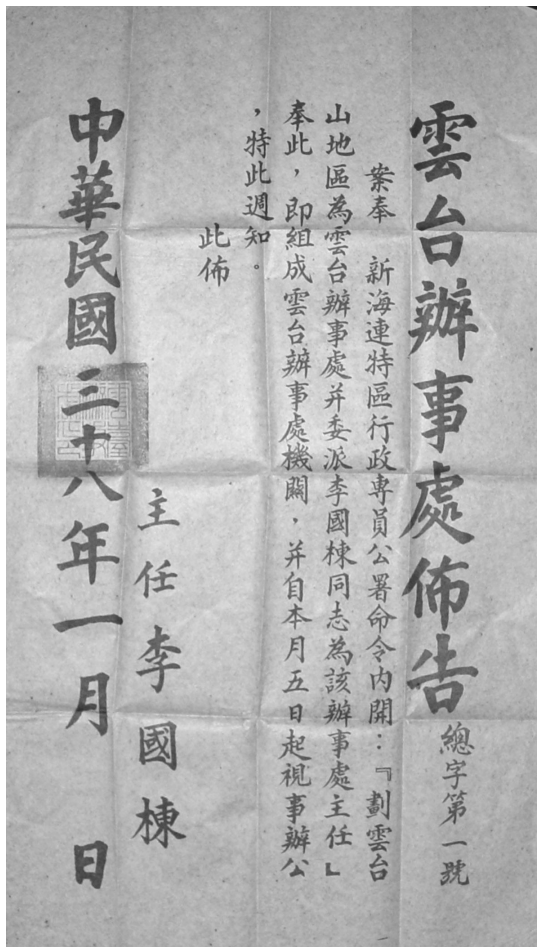 雲台辦事處佈告
總字第一號
案奉 新海連特區行政專員公署命令內開：『劃雲台
山地區為雲台辦事處并委派李國棟同志為該辦事處主任』
奉此，即組成雲台辦事處機關，并自本月五日起視事辦公
，特此週知。
此佈
主任李國棟
中華民國三十八年一月 日